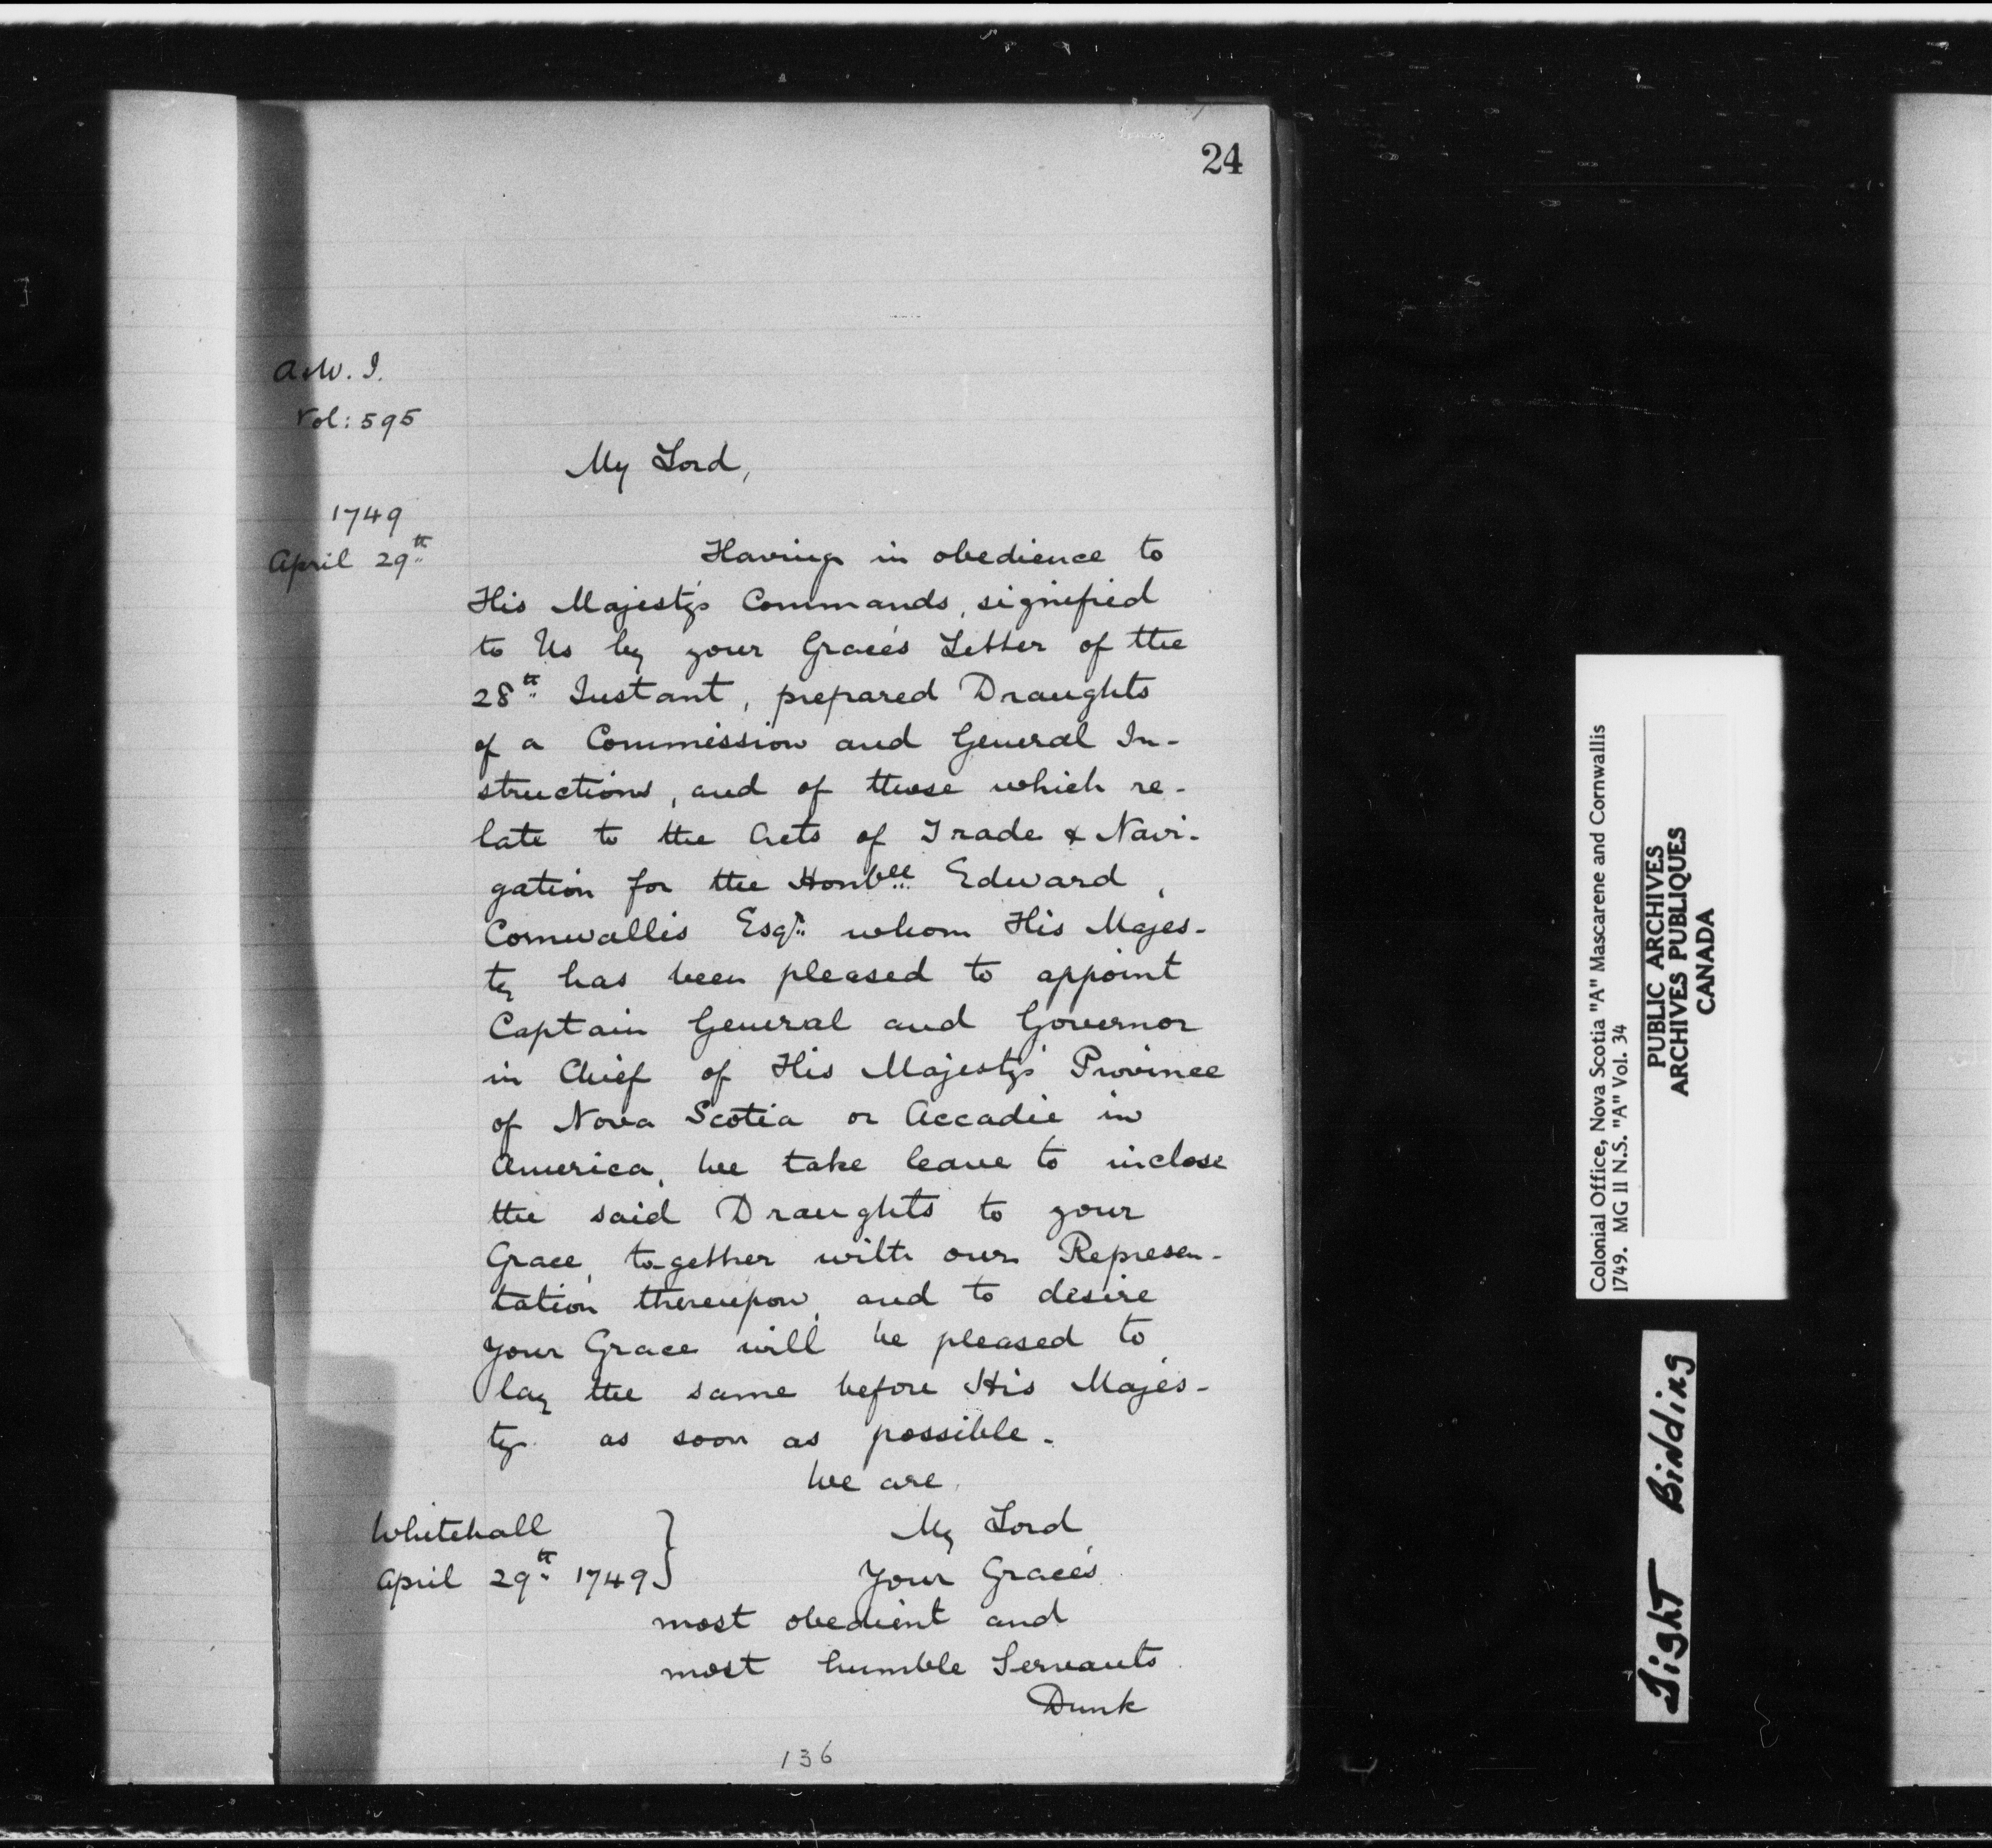 24
A & W. I.
Vol: 595
My Lord,
1749
April 29th
Having in obedience to
His Majesty's Commands, signified
to Us by your Grace's Letter of the
28th Instant, prepared Draughts
of a Commission and General In-
structions, and of those which re-
late to the Acts of Trade & Navi-
gation for the Honble Edward
Cornwallis Esqr. whom His Majes-
ty has been pleased to appoint
Captain General and Governor
in Chief of His Majesty's Province
of Nova Scotia or Accadie in
America, We take leave to inclose
the said Draughts to your
Grace, together with our Represen-
tation thereupon, and to desire
your Grace will be pleased to
lay the same before His Majes-
ty as soon as possible.
We are,
Whitehall
April 29th 1749 }
My Lord
Your Grace's
most obedient and
most humble Servants
Dunk
136
Colonial Office, Nova Scotia "A" Mascarene and Cornwallis
1749. MG 11 N.S. "A" Vol. 34
PUBLIC ARCHIVES
ARCHIVES PUBLIQUES
CANADA
Tight Binding